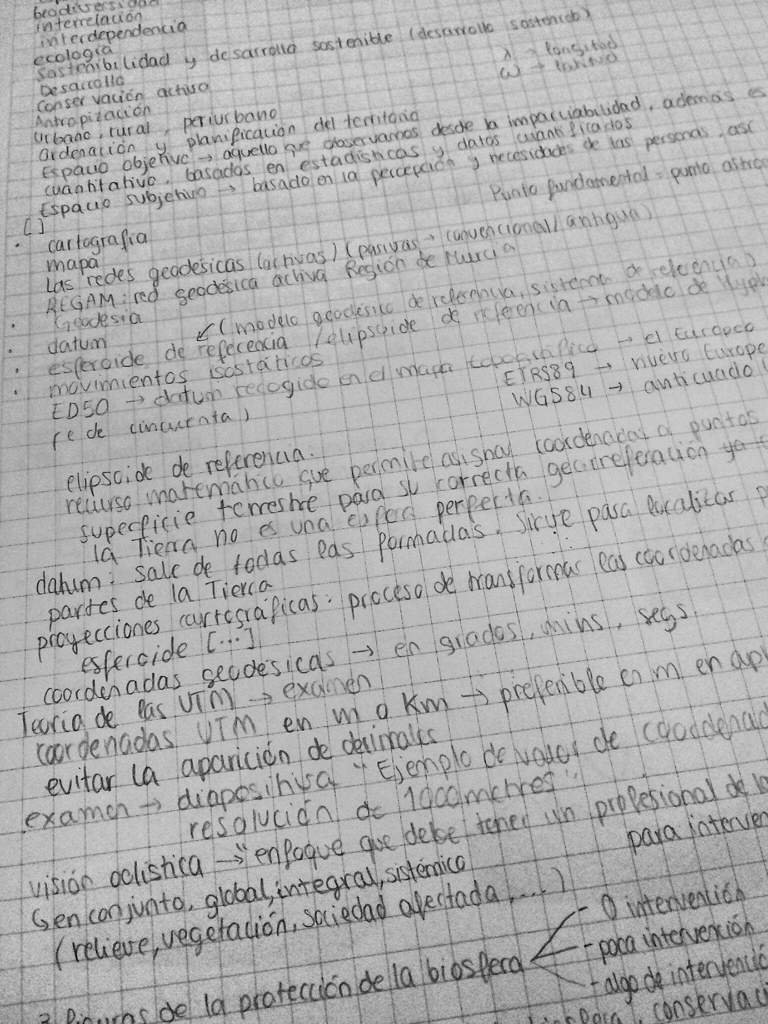 geodiversidad
interrelación
interdependencia
ecología
Sostenibilidad y desarrollo sostenible (desarrollo sostenido)
λ → longitud
ω → latitud
Desarrollo
Conservación activa
Antropización
Urbano, rural, periurbano
Ordenación y planificación del territorio
Espacio objetivo → aquello que observamos desde la imparciabilidad, además es
cuantitativo, basados en estadísticas y datos cuantificados
Espacio subjetivo → basado en la percepción y necesidades de las personas, así
[]
Punto fundamental = punto astro
· cartografía
mapa
Las redes geodésicas (activas) (pasivas → convencional/antigua)
REGAM: red geodésica activa Región de Murcia
· Geodesia
· datum ↙ (modelo geodésico de referencia, sistema de referencia)
· esferoide de referencia / elipsoide de referencia → modelo de
· movimientos isostáticos
ED50 → datum recogido en el mapa topográfico → el Europeo
(e de cincuenta)
ETRS89 → nuevo Europe
WGS84 → anticuado (
elipsoide de referencia:
recurso matemático que permite asignar coordenadas a puntos
superficie terrestre para su correcta georreferación ya
la Tierra no es una esfera perfecta.
datum: sale de todas las formadas. Sirve para localizar
partes de la Tierra
proyecciones cartográficas: proceso de transformar las coordenadas
esferoide [...]
coordenadas geodésicas → en grados, mins, segs.
Teoría de las UTM → examen
coordenadas UTM en m o Km → preferible en m en ap
evitar la aparición de decimales
examen → diapositiva "Ejemplo de de coordenad
resolución de 1000metros"
visión oclística → "enfoque que debe tener un profesional de l
para interven
↳ en conjunto, global, integral, sistémico
(relieve, vegetación, sociedad afectada, ...)
3 figuras de la protección de la biosfera
- 0 intervención
- poca intervención
- algo de intervenció
conservaci